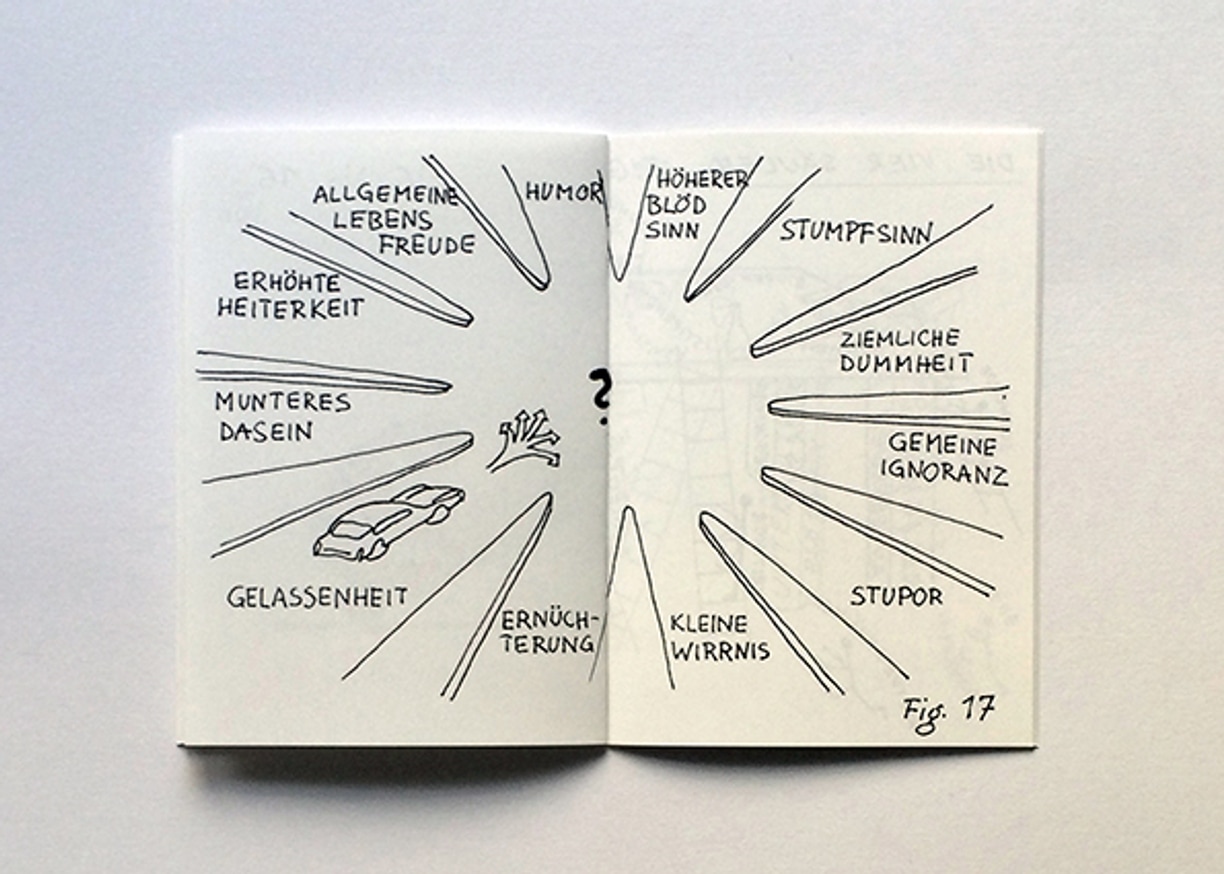 ALLGEMEINE
LEBENS
FREUDE
HUMOR
ERHÖHTE
HEITERKEIT
MUNTERES
DASEIN
GELASSENHEIT
ERNÜCH-
TERUNG
?
HÖHERER
BLÖD
SINN
STUMPFSINN
ZIEMLICHE
DUMMHEIT
GEMEINE
IGNORANZ
STUPOR
KLEINE
WIRRNIS
Fig. 17